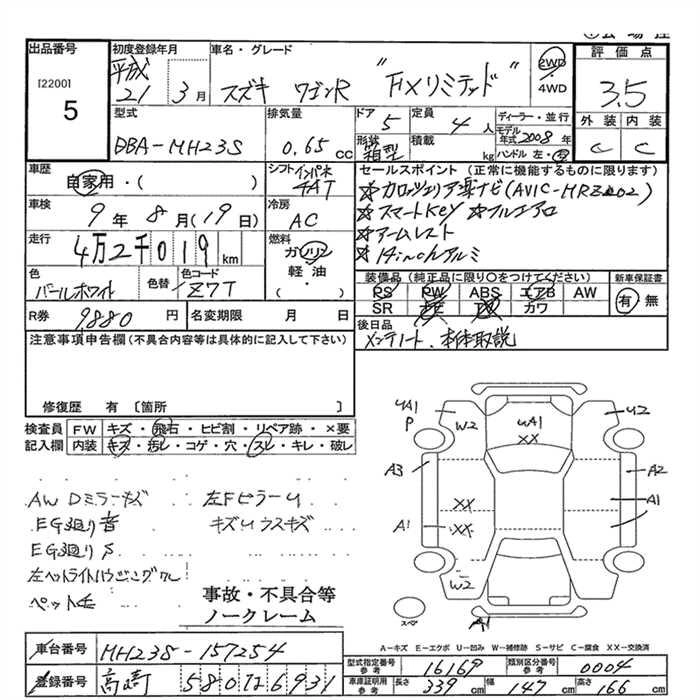 出品番号
[2200]
5
初度登録年月
平成
21 3月
車名・グレード
スズキ ワゴンR "FXリミテッド"
2WD
4WD
評価点
3.5
外装 内装
C C
型式
DBA-MH23S
排気量
0.65 cc
ドア
5
定員
4 人
形状
箱型
積載
kg
ディーラー・並行
モデル年式 2008年
ハンドル 左・右
車歴
自家用・( )
シフト インパネ
4AT
車検
9年 8月(19日)
冷房
AC
走行
4万2千019 km
燃料
ガソリン
軽油
・
( )
色
パールホワイト
色替
色コード
Z7T
R券 9,880 円
名変期限 月 日
セールスポイント (正常に機能するものに限ります)
☆カロッツェリア楽ナビ(AVIC-HRZ002)
☆スマートKEY ☆フルエアロ
☆アームレスト
☆14inchアルミ
装備品(純正品に限り○をつけてください)
PS PW ABS エアB AW
SR ナビ カワ
新車保証書
有 無
後日品
メンテノート、本体取説
注意事項申告欄(不具合内容等は具体的に記入して下さい)
修復歴 有 〔箇所 〕
検査員記入欄
FW キズ・飛石・ヒビ割・リペア跡・×要
内装 キズ・汚レ・コゲ・穴・スレ・キレ・破レ
AW Dミラーキズ 左FピラーU
EG廻り音 キズU ウスキズ
EG廻りS
左ヘットライトハウジングワレ
ペット毛
事故・不具合等
ノークレーム
UA1
P
W2
UA1
XX
U2
A3
A2
XX
A1
A1
XX
W2
A1
スペア
A-キズ E-エクボ U-凹み W-補修跡 S-サビ C-腐食 XX-交換済
車台番号 MH23S-157254
登録番号 高崎 580 い 6931
型式指定番号 参考 16169
類別区分番号 参考 0004
車庫証明用 参考 長さ 339 cm 幅 147 cm 高さ 166 cm